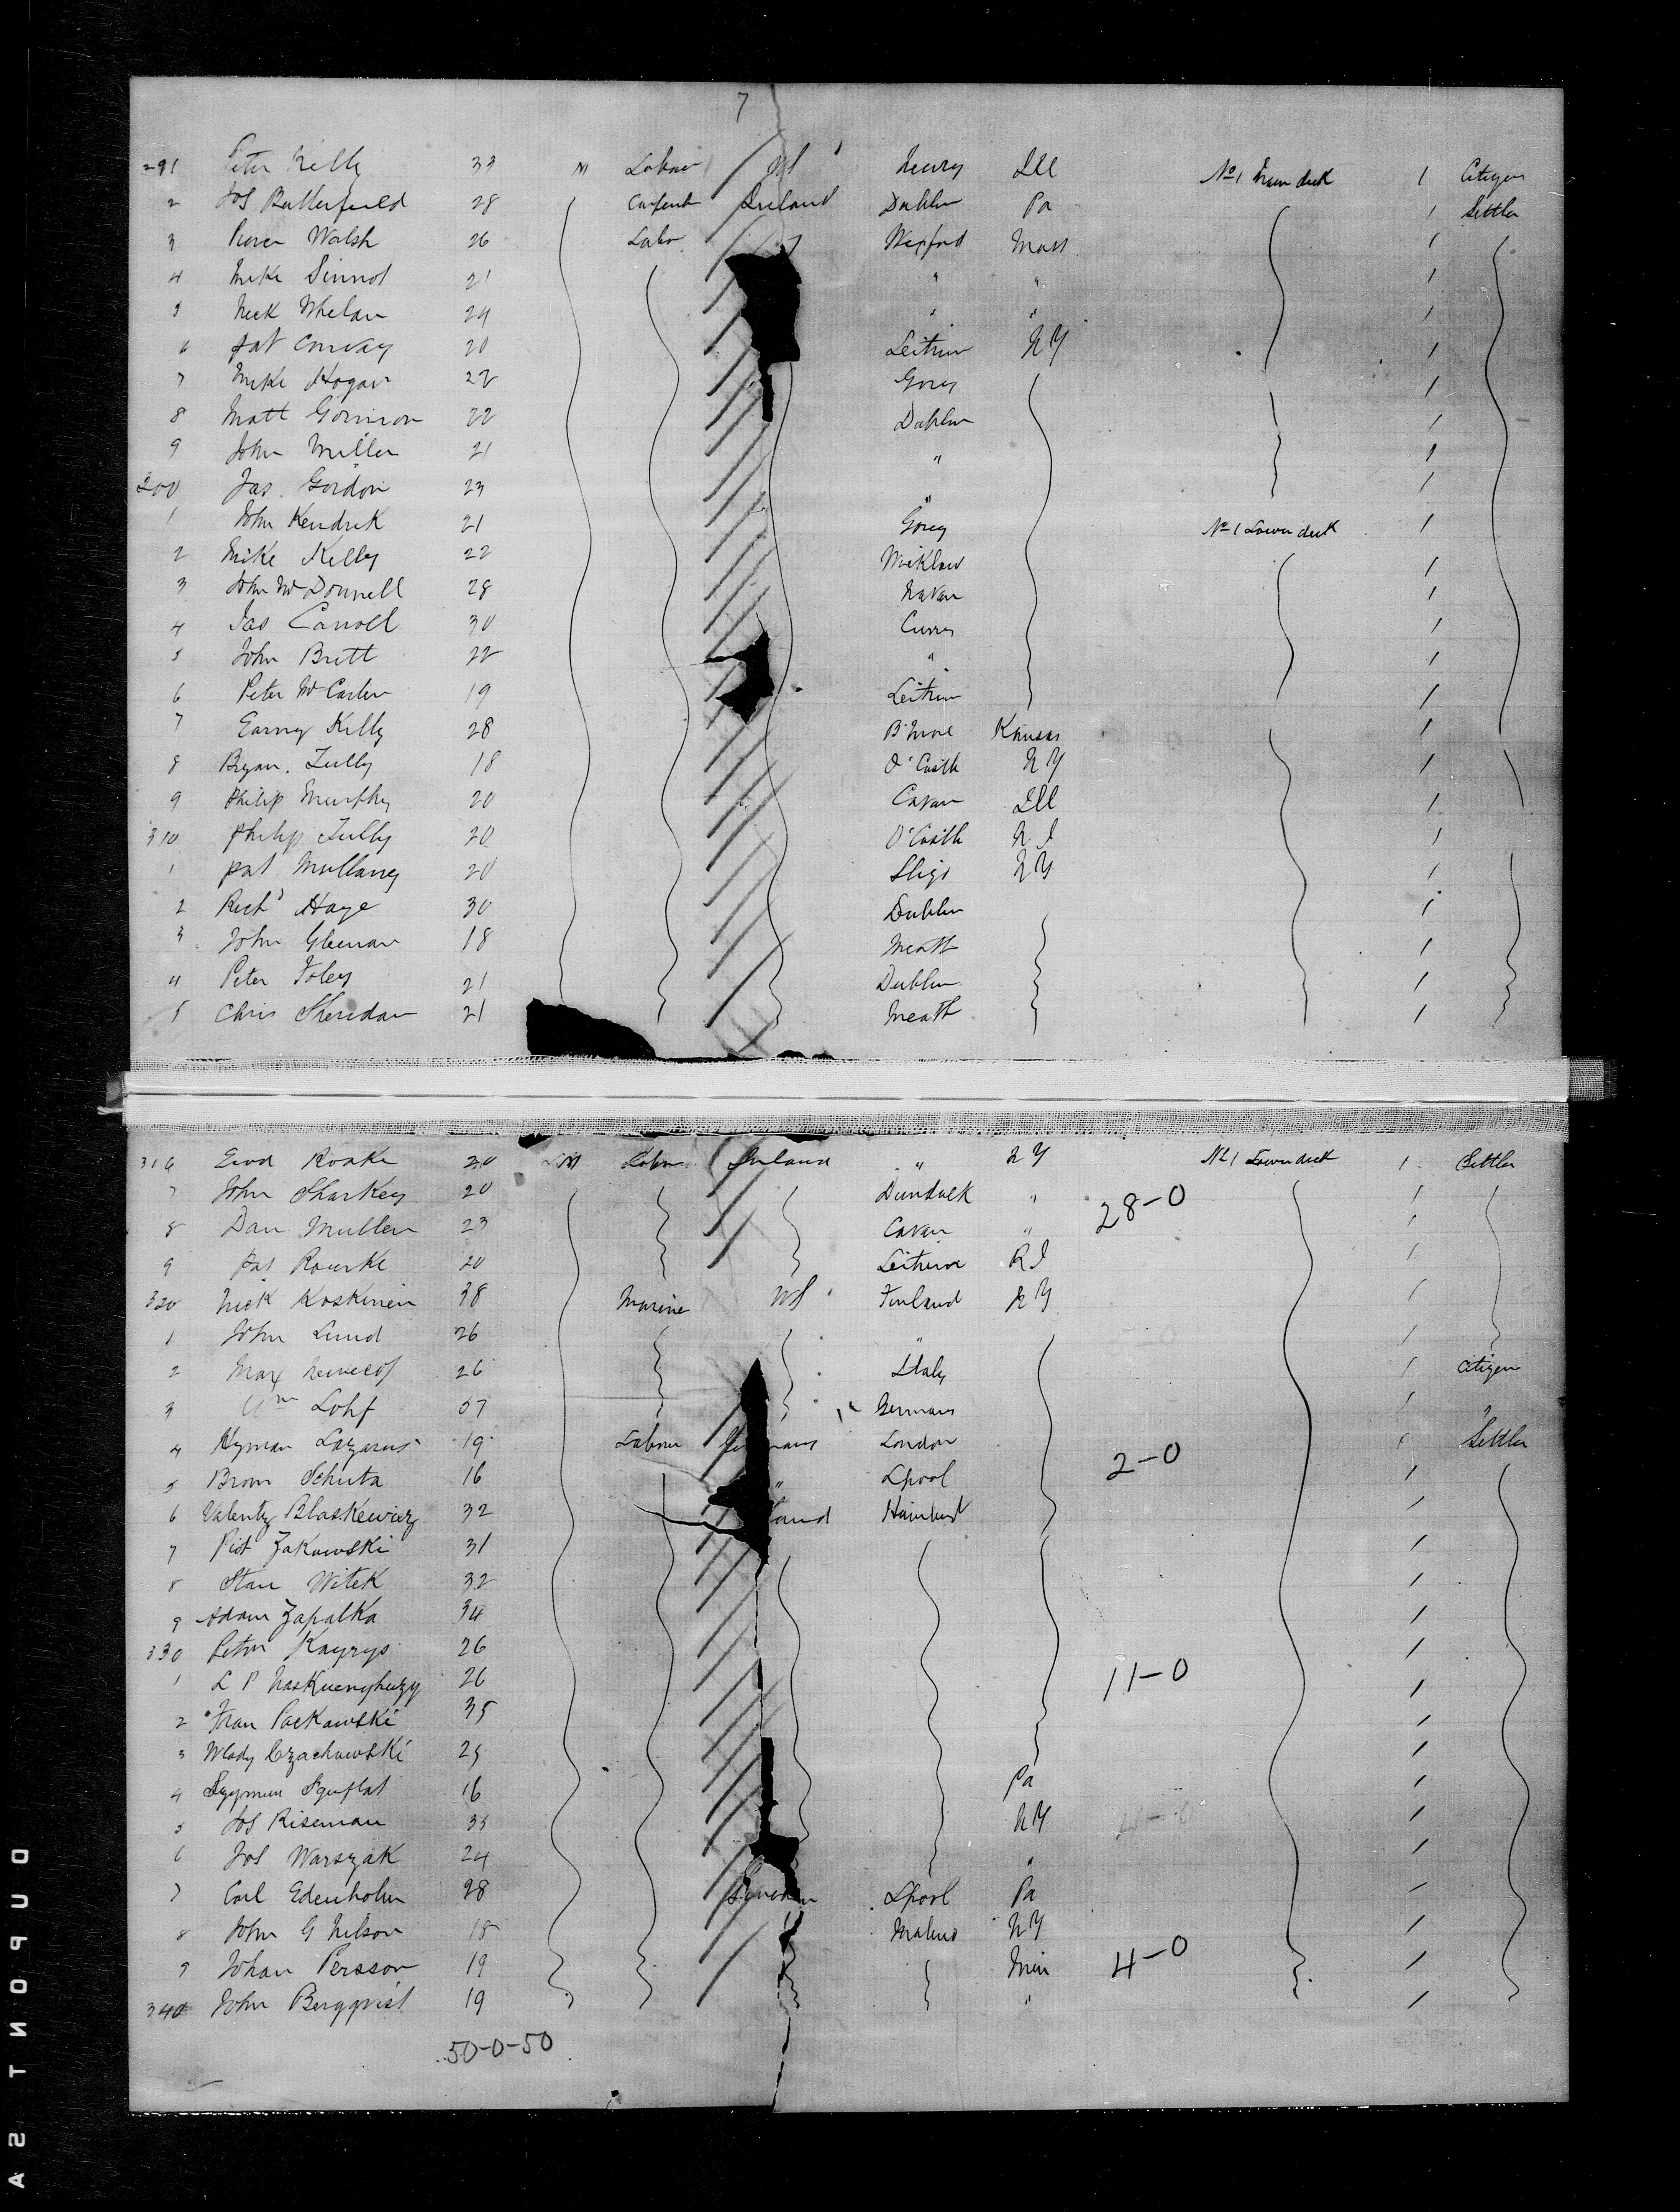 7
291 Peter Kelly 33 M Labour US Newry Ill No 1 Main deck 1 Citizen
2 Jos Butterfield 28 Carpent Ireland Dublin Pa 1 Settler
3 Pierce Walsh 26 Labr Wexford Mass 1
4 Mike Sinnot 21 " " 1
5 Nick Whelan 24 " " 1
6 Pat Conway 20 Leitrim NY 1
7 Mike Hogan 22 Gorey 1
8 Matt Gorman 22 Dublin 1
9 John Miller 21 " 1
300 Jas. Gordon 23 " 1
1 John Kendrick 21 Gorey No 1 Lower deck 1
2 Mike Kelly 22 Wicklow 1
3 John McDonnell 28 Navan 1
4 Jas Carroll 30 Curry 1
5 John Britt 22 " 1
6 Peter McCarten 19 Leitrim 1
7 Barney Kelly 28 B'more Kansas 1
8 Bryan. Tully 18 O'Castle NY 1
9 Philip Murphy 20 Cavan Ill 1
310 Philip Tully 20 O'Castle NJ 1
1 Pat Mullaney 20 Sligo NY 1
2 Richd Haye 30 Dublin 1
3 John Glennan 18 Meath 1
4 Peter Foley 21 Dublin 1
5 Chris Sheridan 21 Meath 1
316 Ewd Roake 20 M Labr Ireland " NY No 1 Lower deck 1 Settler
7 John Sharkey 20 Dundalk " 28-0 1
8 Dan Mullen 23 Cavan " 1
9 Pat Rourke 20 Leitrim RI 1
320 Nick Koskinen 38 Marine US Finland NY 1
1 John Lund 26 " 1
2 Max 26 Italy 1 Citizen
3 Wm Lohf 57 Germany 1 "
4 Hyman Lazarus 19 Labour London 2-0 1 Settler
5 Brom Schuta 16 " Lpool 1
6 Valenty Blaskewicz 32 land Hamburg 1
7 Piot Zakowski 31 1
8 Stan Witek 32 1
9 Adam Zapalka 34 1
330 Peton Kayrys 26 1
1 L P 26 11-0 1
2 Fran Packawski 35 1
3 Wlady Czachowski 25 1
4 16 Pa 1
5 Jos Riseman 35 NY 1
6 Jos Warszak 24 " 1
7 Carl Edenholm 28 Sweden Lpool Pa 1
8 John G Nilson 18 Malmo NY 1
9 Johan Persson 19 Min 4-0 1
340 John Bergqvist 19 " 1
50-0-50
DUPONT SA